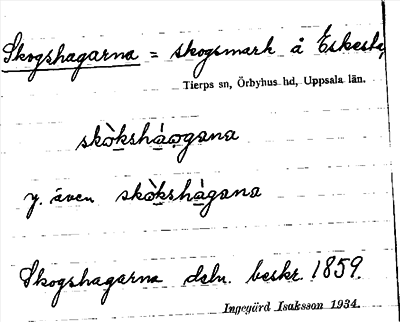 Skogshagarna = skogsmark å Eskesta,
Tierps sn, Örbyhus hd, Uppsala län.
skòksháogana
y. även skòkshàgana
Skogshagarna dsln. beskr. 1859.
Ingegärd Isaksson 1934.